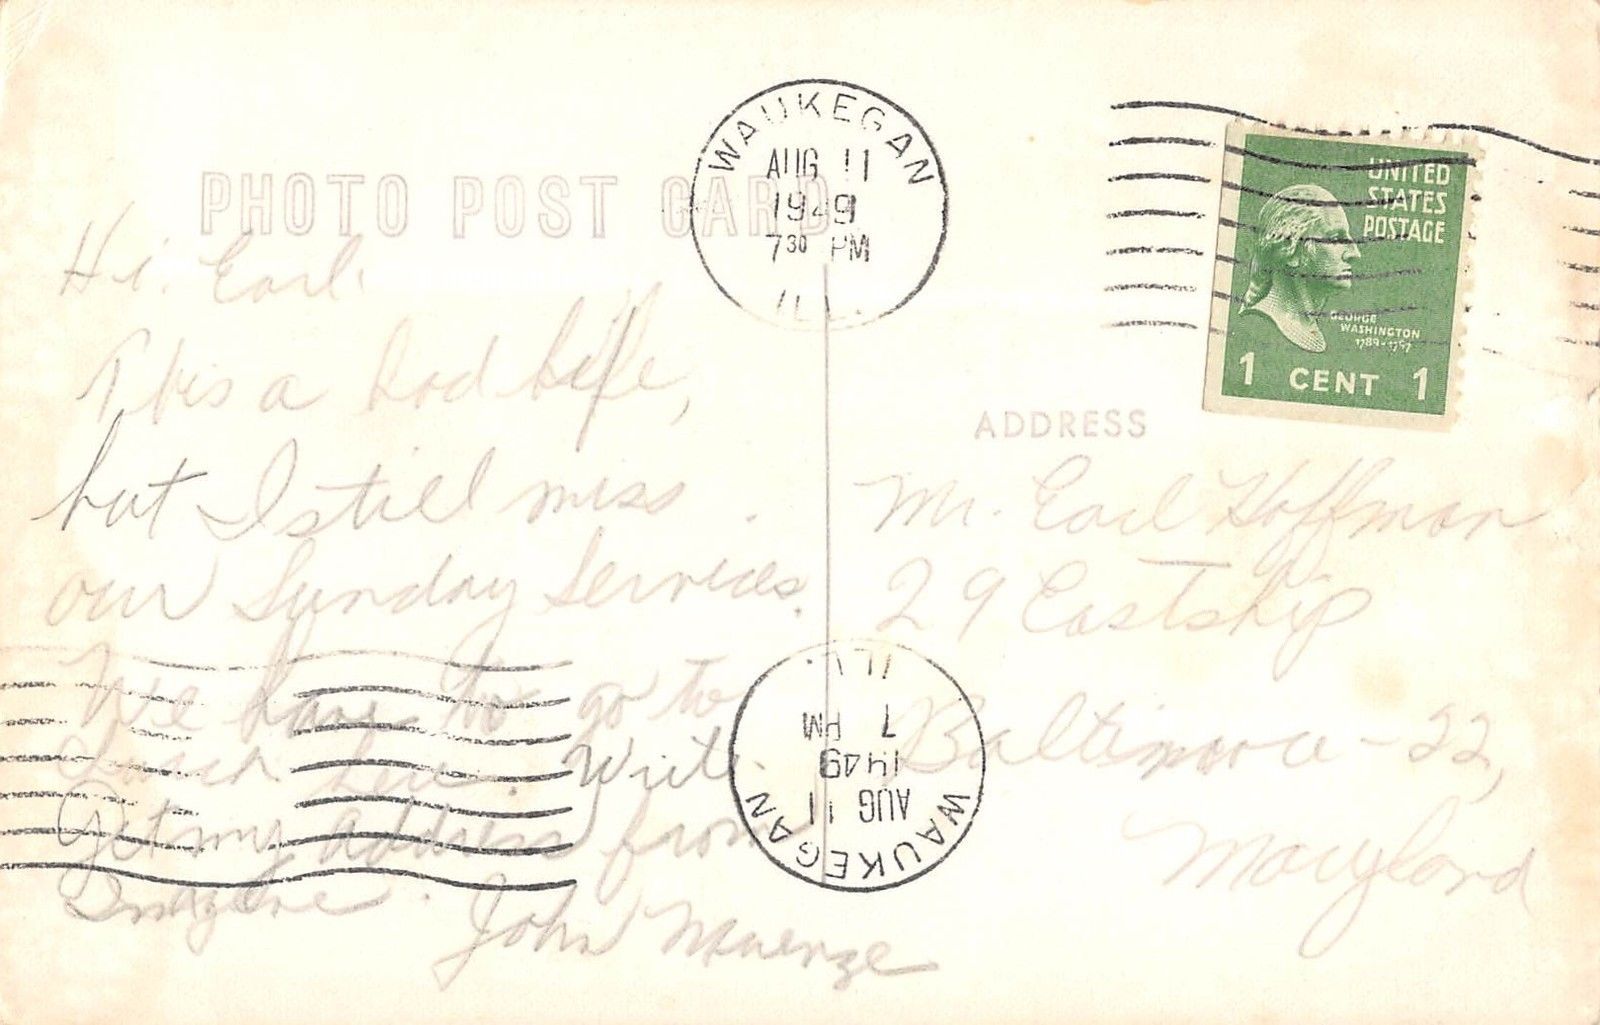 PHOTO POST CARD
WAUKEGAN
AUG 11
1949
7 30 PM
ILL.
UNITED
STATES
POSTAGE
GEORGE
WASHINGTON
1789-1797
1 CENT 1
Hi. Earl.
This a hod life,
but I still miss
our Sunday Services.
We have to go to
here. Write.
Get my address from
John
ADDRESS
Mr. Earl Hoffman
29 Eastship
Baltimore - 22,
Maryland
WAUKEGAN
AUG 11
1949
7 PM
ILL.